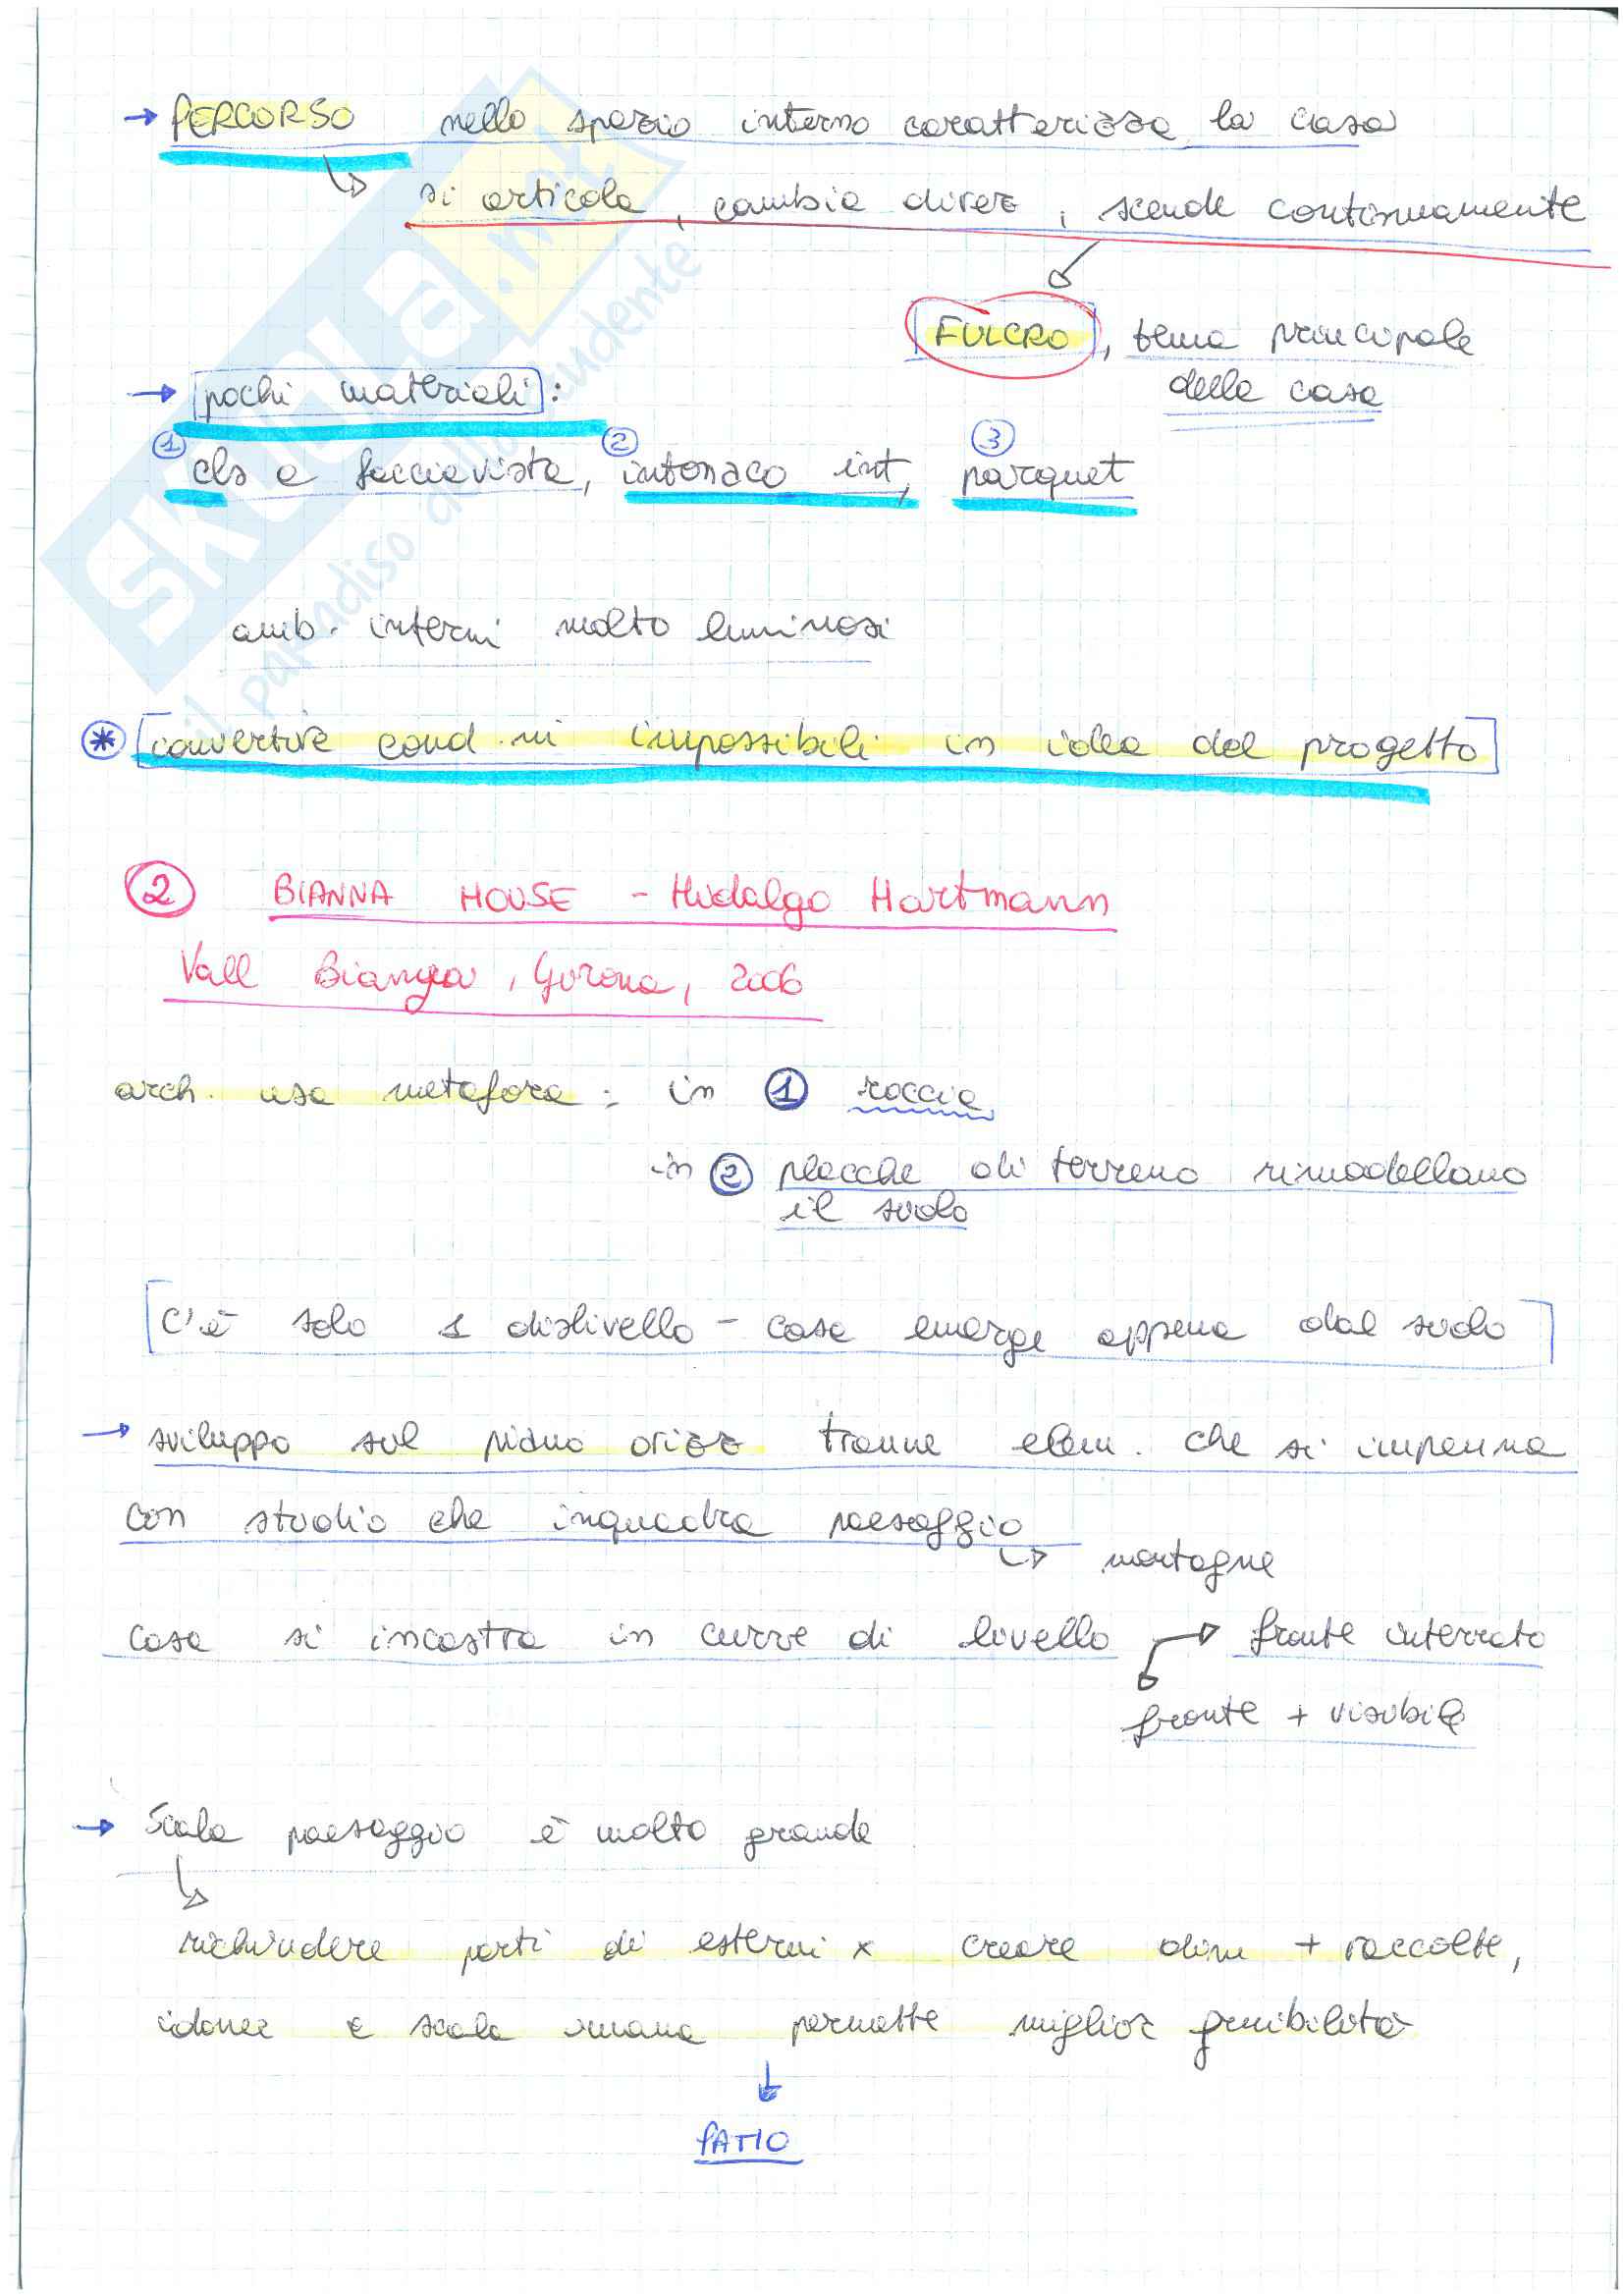 → PERCORSO nello spazio interno caratterizza la casa
↳ si articola, cambia direz, scende continuamente
FULCRO, tema principale
della casa
→ pochi materiali:
① cls a facciavista, ② intonaco int, ③ parquet
amb. interni molto luminosi
* convertire cond.ni impossibili in idea del progetto
② BIANNA HOUSE - Hidalgo Hartmann
Vall Bianya, Girona, 2006
arch. usa metafora: in ① roccia
in ② placche di terreno rimodellano
il suolo
C'è solo 1 dislivello - casa emerge appena dal suolo
→ sviluppo sul piano orizz tranne elem. che si impenna
con studio che inquadra paesaggio
↳ montagne
casa si incastra in curve di livello → fronte interrato
fronte + visibile
→ Scala paesaggio è molto grande
↳
richiudere parti di esterni x creare dim + raccolte,
idonee a scala umana permette miglior fruibilità
↓
PATIO
SKUOLA.net
il paradiso dello studente